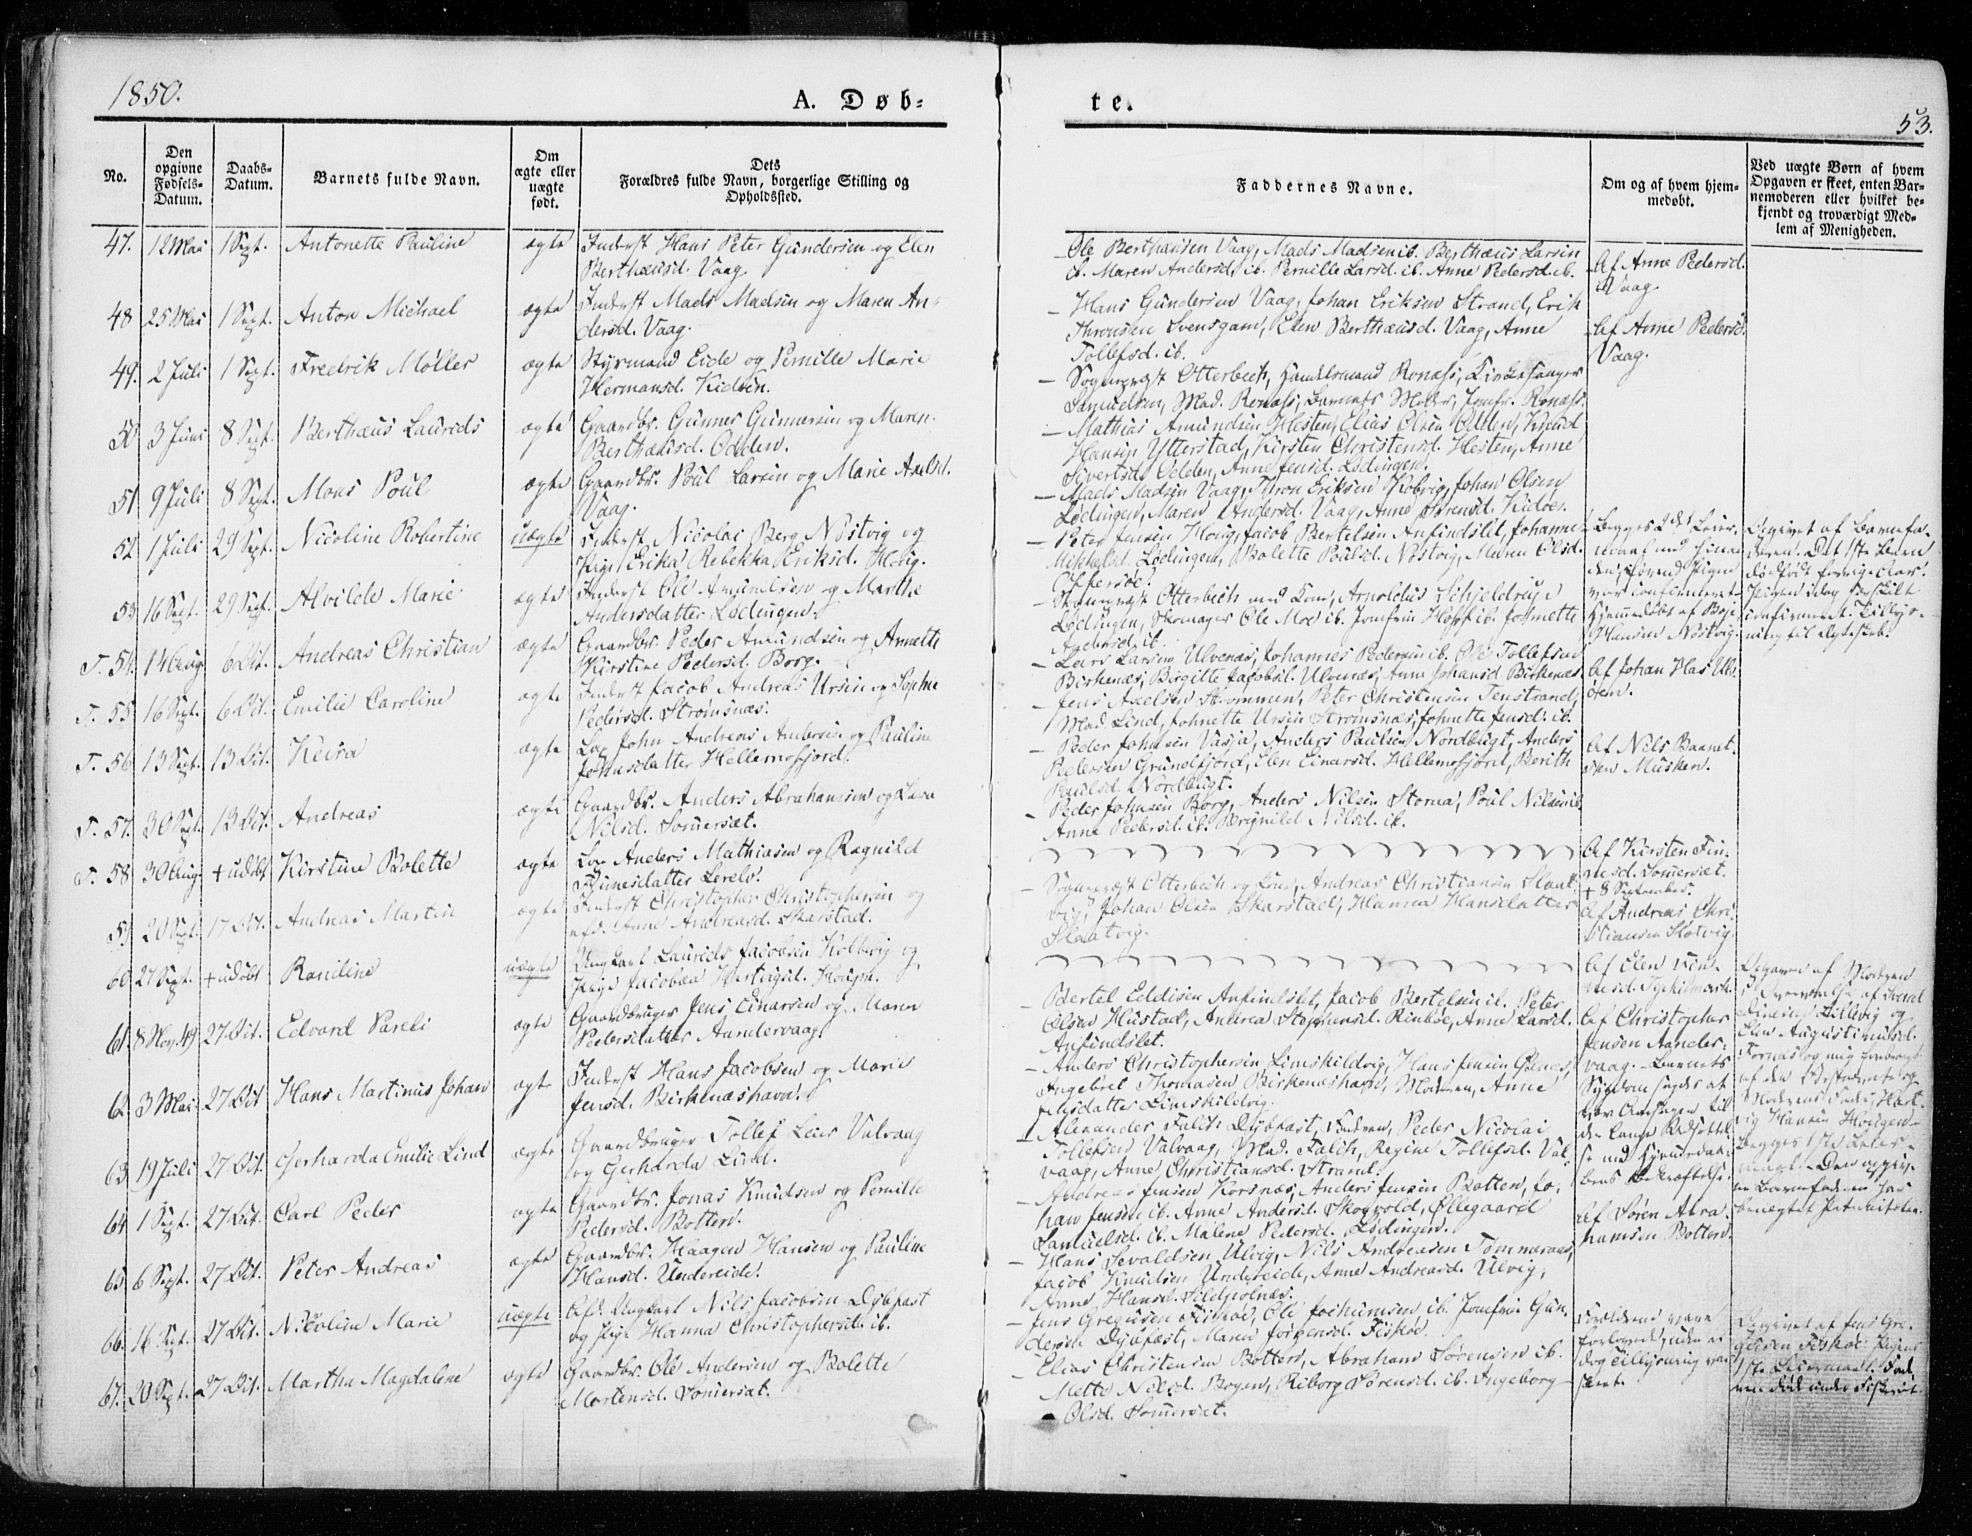 1850.
A. Døb-
te.
53.
No.
Den
opgivne
Fødsels-
Datum.
Daabs-
Datum.
Barnets fulde Navn.
Om
ægte eller
uægte
født.
Dets
Forældres fulde Navn, borgerlige Stilling og
Opholdssted.
Faddernes Navne.
Om og af hvem hjem-
medøbt.
Ved uægte Børn af hvem
Opgaven er skeet, enten Bar-
nemoderen eller hvilket be-
kjendt og troværdigt Med-
lem af Menigheden.
47. 12 Mai 1 Sept. Antonette Pauline ægte Inderst Hans Peter Gundersen og Elen
Berthæusd. Vaag.
Ole Berthæusen Vaag, Mads Madsen ib. Berthæus Larsen
ib. Maren Andersd. ib. Pernille Larsd. ib. Anne Pedersd. ib.
Af Anne Pedersd.
Vaag.
48 25 Mai 1 Sept. Anton Michael ægte Inderst Mads Madsen og Maren An-
dersd. Vaag.
Hans Gundersen Vaag, Johan Eriksen Strand, Erik
Thronsen Svensgam, Elen Berthæusd. Vaag, Anne
Tollefsd. ib.
Af Anne Pedersd.
Vaag.
49. 2 Juli 1 Sept. Fredrik Møller ægte Styrmand Eide og Pernille Marie
Hermansd. Kidøen.
Sognepræst Otterbech, Handelsmand Ronæss, Kirkesanger
Samuelsen, Mad. Ronæss, Barnets Moder, Jomfr. Ronæss
50 3 Juni 8 Sept. Berthæus Laurids ægte Gaardbr. Gunner Gunnarsen og Maren
Berthæusd. Odden.
Mathias Amundsen Hesten, Elias Olsen Odden, Knud
Hansen Ytterstad, Kirsten Christensd. Hesten, Anne
Sivertsd. Odden, Anne Jensd. Lødingen.
51 9 Juli 8 Sept. Mons Poul ægte Gaardbr. Poul Larsen og Marie Axelsd.
Vaag.
Mads Madsen Vaag, Thron Eriksen Kobvig, Johan Olsen
Lødingen, Maren Andersd. Vaag, Anne Sørensd. Kidøe.
52 1 Juli 29 Sept. Nicoline Robertine uægte Inderst Nicolai Berg Nøstvig og
Pige Erika Rebekka Eriksd. Houg.
Peter Jensen Houg, Jacob Bertelsen Anfindslet, Johanne
Mikkelsd. Lødingen, Bolette Poulsd. Nøstvig, Maren Olsd.
Offersøe.
Begges 2det Leier-
maal med hinan-
den, førend Pigen
var confirmeret
Hjemmedøbt af Boje
Hansen Nøstvig.
Opgivet af Barnefa-
deren. Det 1ste Barn
dødfødt forrige Aar.
53 16 Sept. 29 Sept. Alvilde Marie ægte Inderst Ole Amundsen og Marthe
Andersdatter Lødingen.
Sognepræst Otterbech med Frue, Arnoldus Schjelderup
Lødingen, Skomager Ole Moe ib. Jomfru Hopf ib. Johnette
Andersd. ib.
T. 54. 14 Aug. 6 Oct. Andreas Christian ægte Gaardbr. Peder Amundsen og Annette
Kirstine Pedersd. Borg.
Lars Larsen Ulvenæs, Johannes Pedersen ib. Ole Tollefsen
Birkenæs, Birgitte Jacobsd. Ulvenæs, Anne Johansd. Birkenæs.
T. 55 16 Sept. 6 Oct. Emilie Caroline ægte Inderst Jacob Andreas Ursin og Sophie
Pedersd. Strømsnæs.
Jens Axelsen Strømmen, Peter Christensen Fenstrand,
Mad. Lind, Johnette Ursin Strømsnæs, Johnette Jensd. ib.
T. 56 13 Sept. 13 Oct. Keira ægte Lap John Andreas Andersen og Pauline
Johnsdatter Hellemofjord.
Peder Johnsen Vasja, Anders Paulsen Nordbugt, Anders
Pedersen Grundfjord, Elen Einarsd. Hellemofjord, Berith
Paulsd. Nordbugt.
Af Nils Baanet-
sen Musken.
T. 57. 30 Sept. 13 Oct. Andreas ægte Gaardbr. Anders Abrahamsen og Lava
Nilsd. Sommersæt.
Peder Johnsen Borg, Anders Nilsen Storaa, Poul Nilsen ib.
Anne Pedersd. ib. Brynild Nilsd. ib.
T. 58 30 Aug. + udøbt Kirstine Bolette ægte Lap Anders Mathiasen og Ragnild
Finnesdatter Lerelv.
Af Kirsten Fin-
nesd. Sommersæt.
+ 8 September.
59 20 Sept. 17 Oct. Andreas Martin ægte Inderst Christopher Christophersen og
Anne Andreasd. Skarstad.
Sognepræst Otterbech og Frue, Andreas Christiansen Slaat-
vig, Johan Olsen Skarstad, Hanna Hansdatter
Slaatvig.
Af Andreas Chri-
stiansen Slotvig
60 27 Sept. + udøbt Raniline uægte Ungkarl Laurids Jacobsen Kolbvig og
Pige Jacobea Hartvigsd. Hougen.
Af Elen
61. 8 Nov. 49 27 Oct. Edvard Pareli ægte Gaardbruger Jens Einarsen og Maren
Pedersdatter Aandervaag.
Bertel Eddisen Anfindslet, Jacob Bertelsen ib. Peter
Olsen Hustad, Andrea Stephensd. Rinbøe, Anne Larsd.
Anfindslet.
Af Christopher
Jensen Aander-
vaag. Barnets
62 3 Mai 27 Oct. Hans Martinus Johan ægte Inderst Hans Jacobsen og Marie
Jensd. Birkenæshavn.
Anders Christophersen Limskildvig, Hans Jensen
Ingebret Thomasen Birkenæshavn, Moderen, Anne
Limskildvig.
63 19 Juli 27 Oct. Gerharda Emilie Lind ægte Gaardbruger Tollef Leier Valvaag
og Gerharda Lind.
Alexander Falch Dybfæst, Faderen, Peder Nicolai
Tollefsen Valvaag, Mad. Falch, Regine Tollefsd. Val-
vaag, Anne Christiansd. Strand.
64 1 Sept. 27 Oct. Carl Peder ægte Gaardbr. Jonas Knudsen og Pernille
Pedersd. Botten.
Andreas Jensen Korsnæs, Anders Jensen Botten, Jo-
han Jensen ib. Anne Andersd. Skogvold, Øllegaard
Samuelsd. ib. Malene Pedersd. Lødingen.
Af Søren Abra-
hamsen Botten.
65 6 Sept. 27 Oct. Peter Andreas ægte Gaardbr. Haagen Hansen og Pauline
Hansd. Undereide.
Hans Sevaldsen Ulvig, Nils Andreasen Tømmeraas,
Jacob Knudsen Undereide, Anne Andreasd. Ulvig,
Anne Hansd. Sildpolnæs.
66. 16 Sept. 27 Oct. Nikoline Marie uægte Afd. Ungkarl Nils Jacobsen Dybfæst
og Pige Hanna Christophersd. ib.
Jens Gregusen Fiskøe, Ole Jochumsen ib. Jomfrue Gun-
dersen Dybfæst, Maren Jørgensd. Fiskøe.
Forældrene vare
forlovede, uden at
dog Tillysning var
skeet.
Opgivet af Jens Gre-
gusen Fiskøe. Pigens
1ste Leiermaal. Fad-
eren død under Fiskeriet.
67. 20 Sept. 27 Oct. Martha Magdalene ægte Gaardbr. Ole Andersen og Bolette
Mortensd. Sommersæt.
Elias Christensen Botten, Abraham Sørensen ib.
Mette Nilsd. Bogen, Riborg Sørensd. ib. Ingeborg
Olsd. Sommersæt.